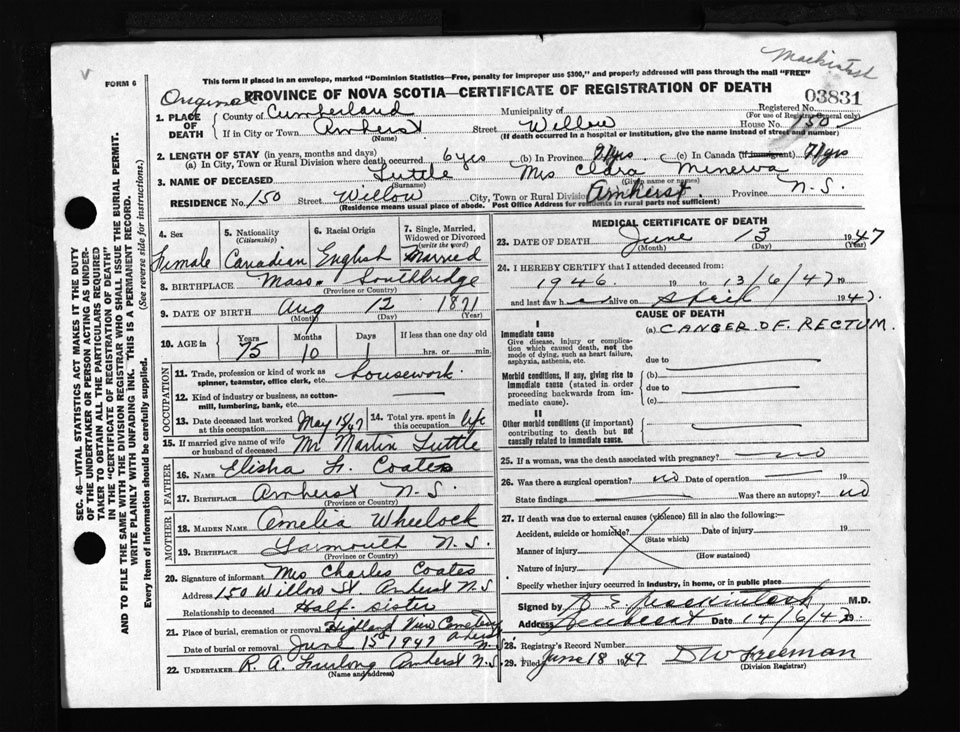 Mackintosh
FORM 6
This form if placed in an envelope, marked "Dominion Statistics—Free, penalty for improper use $300," and properly addressed will pass through the mail "FREE"
Original
PROVINCE OF NOVA SCOTIA—CERTIFICATE OF REGISTRATION OF DEATH
03831
1. PLACE OF DEATH
County of Cumberland Municipality of Registered No.
(For use of Registrar General only)
If in City or Town Amherst Street Willow House No. 150
(Name) (If death occurred in a hospital or institution, give the name instead of street and number)
2. LENGTH OF STAY (in years, months and days)
(a) In City, Town or Rural Division where death occurred 6 yrs (b) In Province yrs. (c) In Canada (if immigrant) 71 yrs
3. NAME OF DECEASED Tuttle Mrs Clara Minerva
(Surname) (Given name or names)
RESIDENCE No. 150 Street Willow City, Town or Rural Division Amherst. Province N.S.
(Residence means usual place of abode. Post Office Address for residents in rural parts not sufficient)
4. Sex
Female
5. Nationality
(Citizenship)
Canadian
6. Racial Origin
English
7. Single, Married, Widowed or Divorced
(write the word)
Married
8. BIRTHPLACE Mass. Southbridge
(Province or Country)
9. DATE OF BIRTH Aug 12 1871
(Month) (Day) (Year)
10. AGE in Years Months Days If less than one day old
75 10 1 hrs. or min.
OCCUPATION
11. Trade, profession or kind of work as spinner, teamster, office clerk, etc. housework
12. Kind of industry or business, as cotton-mill, lumbering, bank, etc.
13. Date deceased last worked at this occupation May 15/47
14. Total yrs. spent in this occupation life
15. If married give name of wife or husband of deceased Mr Martin Tuttle
FATHER
16. NAME Elisha F. Coates
17. BIRTHPLACE Amherst N.S.
(Province or Country)
MOTHER
18. MAIDEN NAME Amelia Wheelock
19. BIRTHPLACE Yarmouth N.S.
(Province or Country)
20. Signature of informant Mrs Charles Coates
Address 150 Willow St. Amherst N.S
Relationship to deceased Half-sister
21. Place of burial, cremation or removal Highland View Cemetery Amherst
Date of burial or removal June 15th 1947 N.S.
22. UNDERTAKER R. A. Furlong Amherst N.S.
(Name and address)
MEDICAL CERTIFICATE OF DEATH
23. DATE OF DEATH June 13 1947
(Month) (Day) (Year)
24. I HEREBY CERTIFY that I attended deceased from:
1946. 19 to 13/6/47 19
and last saw alive on 1947.
CAUSE OF DEATH
I
Immediate cause (a) CANCER OF RECTUM.
Give disease, injury or complication which caused death, not the mode of dying, such as heart failure, asphyxia, asthenia, etc.
due to
Morbid conditions, if any, giving rise to immediate cause (stated in order proceeding backwards from immediate cause).
(b)
due to
(c)
II
Other morbid conditions (if important) contributing to death but not causally related to immediate cause.
25. If a woman, was the death associated with pregnancy? no
26. Was there a surgical operation? no Date of operation 19
State findings Was there an autopsy? no
27. If death was due to external causes (violence) fill in also the following:—
Accident, suicide or homicide? Date of injury 19
(State which)
Manner of injury
(How sustained)
Nature of injury
Specify whether injury occurred in industry, in home, or in public place
Signed by Mackintosh M.D.
Address Amherst Date 14/6/47 19
28. Registrar's Record Number
29. Filed June 18 1947 D W Freeman
(Division Registrar)
SEC. 46—VITAL STATISTICS ACT MAKES IT THE DUTY
OF THE UNDERTAKER OR PERSON ACTING AS UNDER-
TAKER TO OBTAIN ALL THE PARTICULARS REQUIRED
IN THE "CERTIFICATE OF REGISTRATION OF DEATH"
AND TO FILE THE SAME WITH THE DIVISION REGISTRAR WHO SHALL ISSUE THE BURIAL PERMIT.
WRITE PLAINLY WITH UNFADING INK. THIS IS A PERMANENT RECORD.
Every item of information should be carefully supplied.
(See reverse side for instructions.)